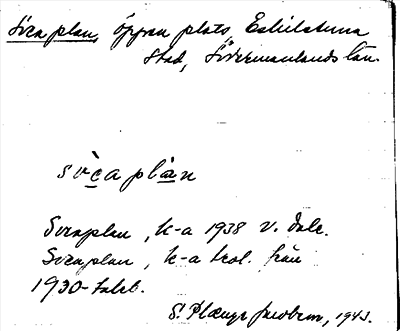 Svea plan, öppen plats, Eskilstuna
Stad, Södermanlands län.
svèa plàn
Sveaplan, k-a 1938 V. Dale.
Sveaplan, k-a trol. från
1930-talet.
S. 1943.